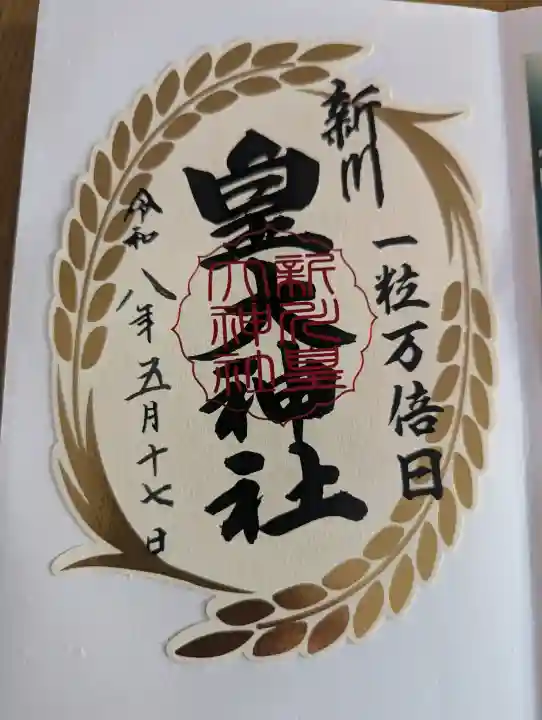 新川
一粒万倍日
皇大神社
新川皇
大神社
令和八年五月十七日